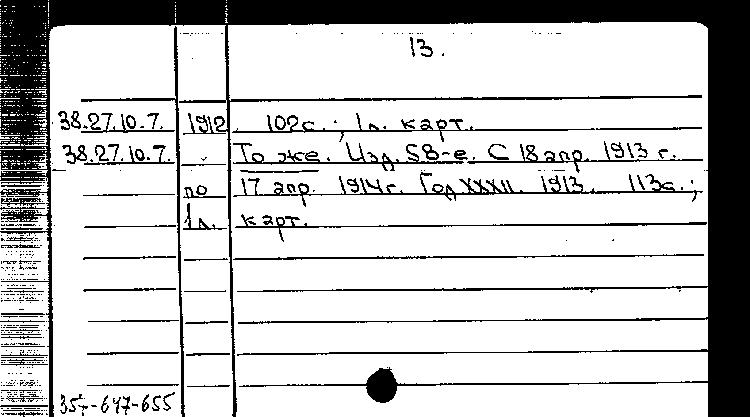 13.
38.27.10.7. 1912. 102с.; 1л. карт.
38.27.10.7. То же. Изд. 58-е. С 18 апр. 1913 г.
по 17 апр. 1914 г. Год XXXII. 1913. 113с.;
1л. карт.
35 -647-655